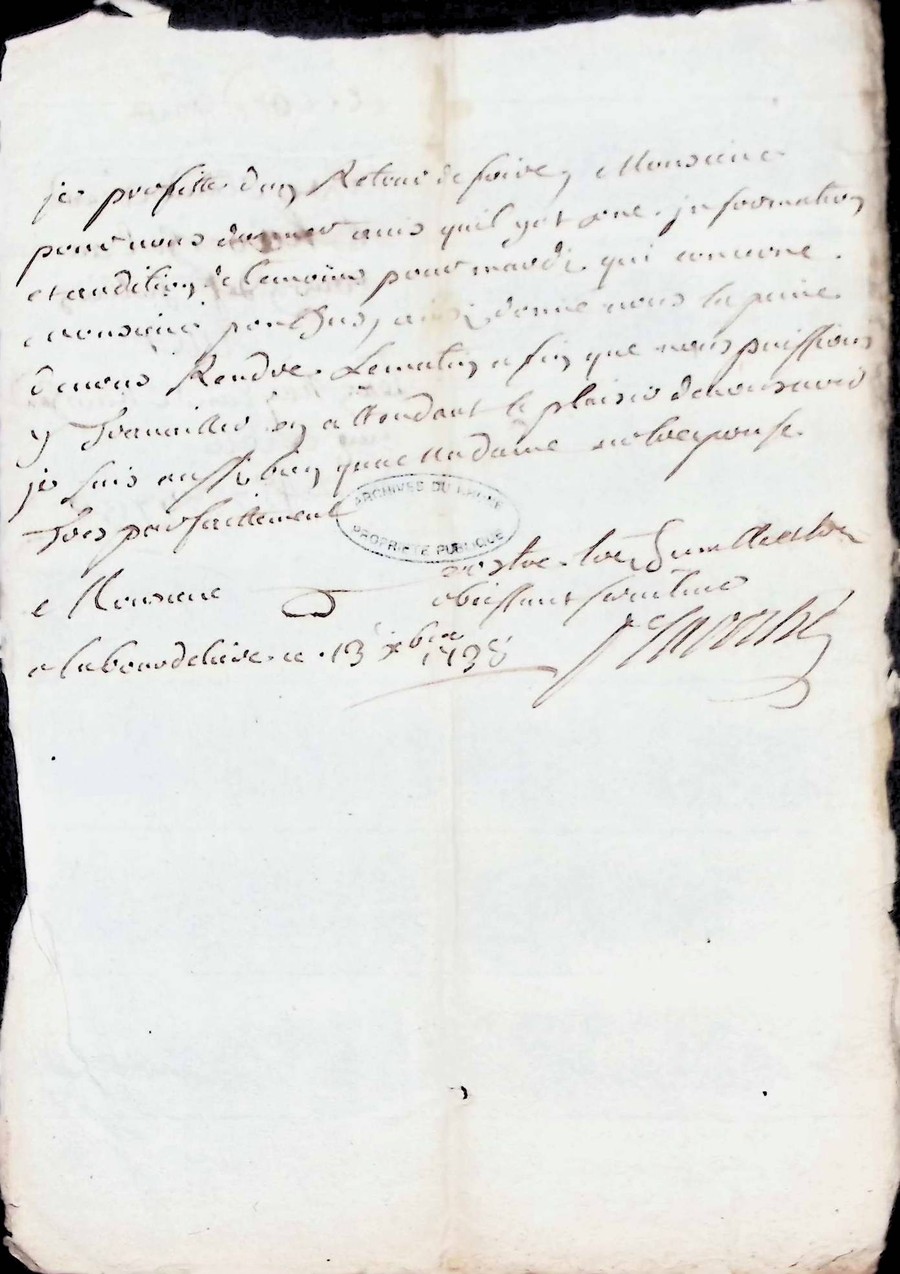 je profitte dun Retour de foire, Monsieur
pour vous donner avis quil yat une jnformation
et audition de temoins pour mardi qui concerne
monsieur ainsi donne vous la peine
de vous Rendre Le matin afin que nous puissions
y travaillier en attendant le plaisir de vous avoir
je suis aussi bien que Madame votre epouse
tres parfaittement
ARCHIVES DU RHONE
PROPRIÉTÉ PUBLIQUE
vostre tres humble et tres
Monsieur
obeissant serviteur
a la ce 13 xbre 1738